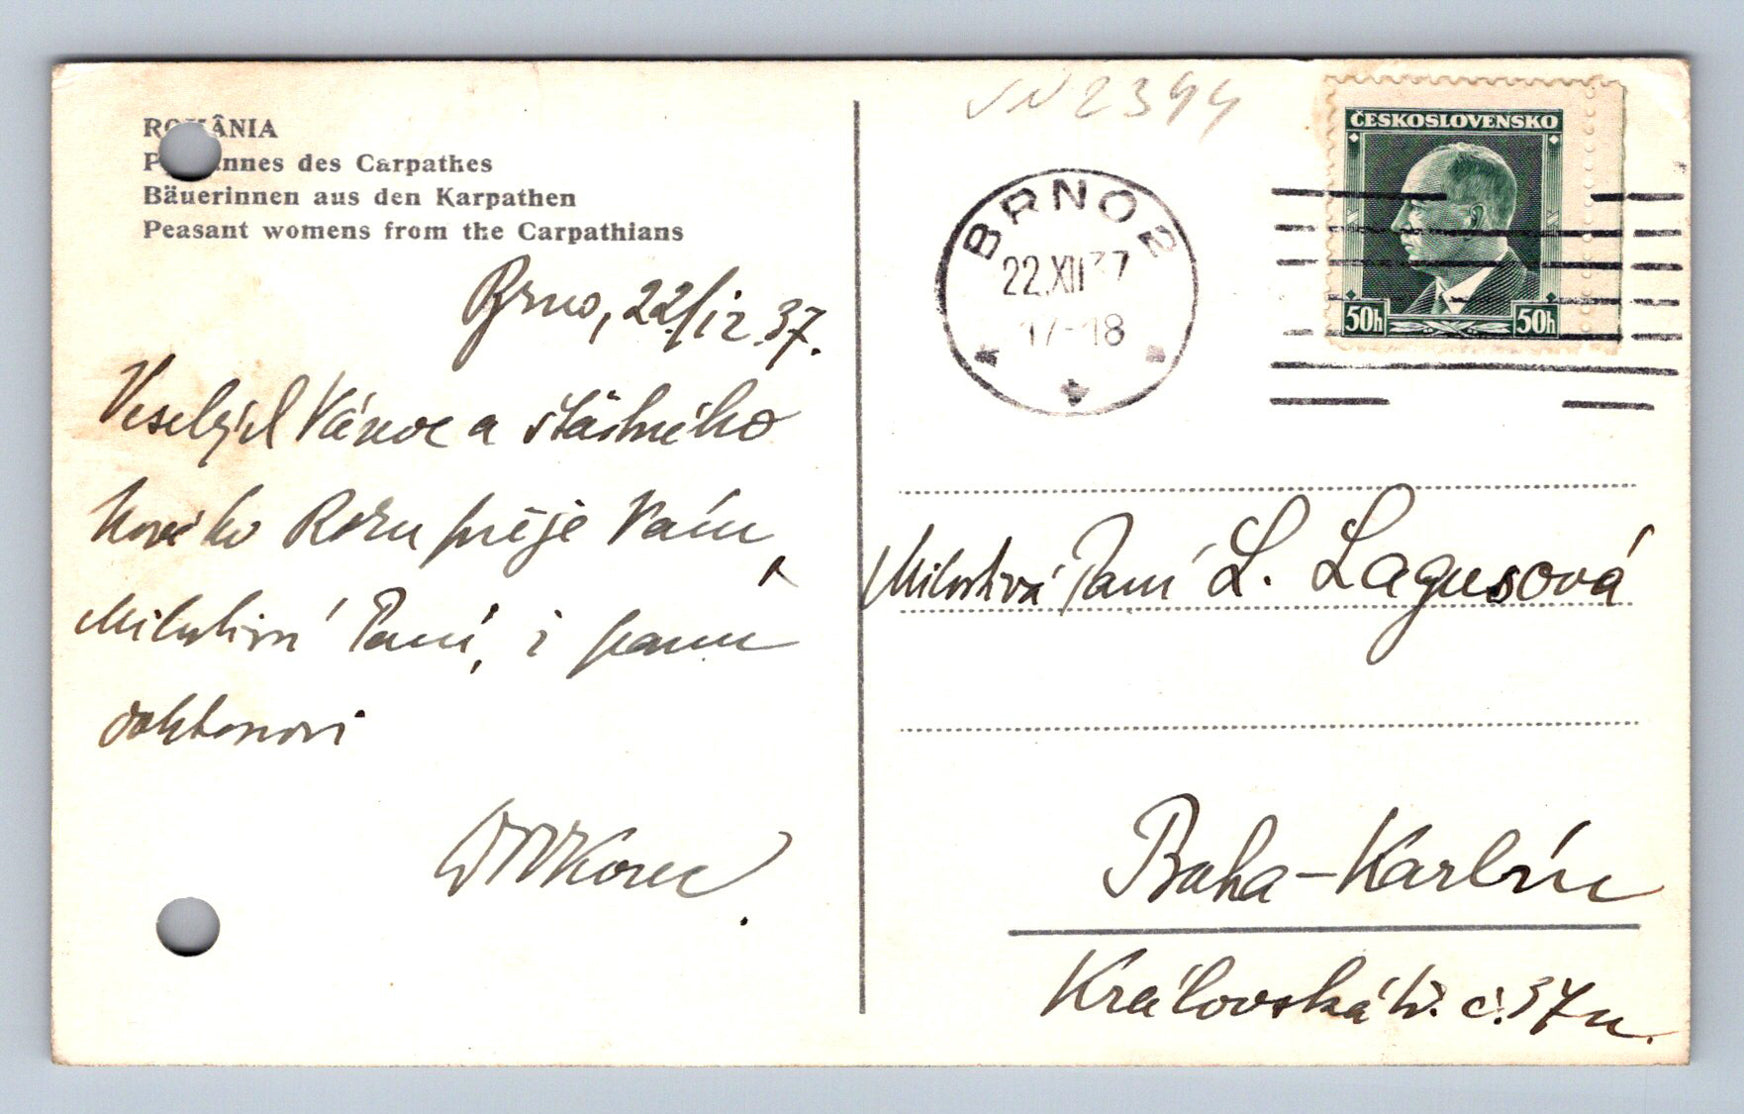 ROMÂNIA
des Carpathes
Bäuerinnen aus den Karpathen
Peasant womens from the Carpathians
Brno, 22/12.37.
Veselých Vánoc a šťastného
Nového Roku přeje Vám,
Milostivá Paní, i panu
doktorovi
Korec
2344
BRNO 2
22.XII 37
17-18
ČESKOSLOVENSKO
50h 50h
Milostivá Paní L. Lagusová
Praha-Karlín
Královská tř. č.